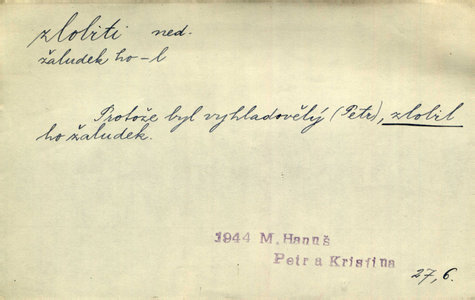 zlobiti ned.
žaludek ho –l
Protože byl vyhladovělý (Petr), zlobil
ho žaludek.
1944 M. Hanuš
Petr a Kristina
27,6.